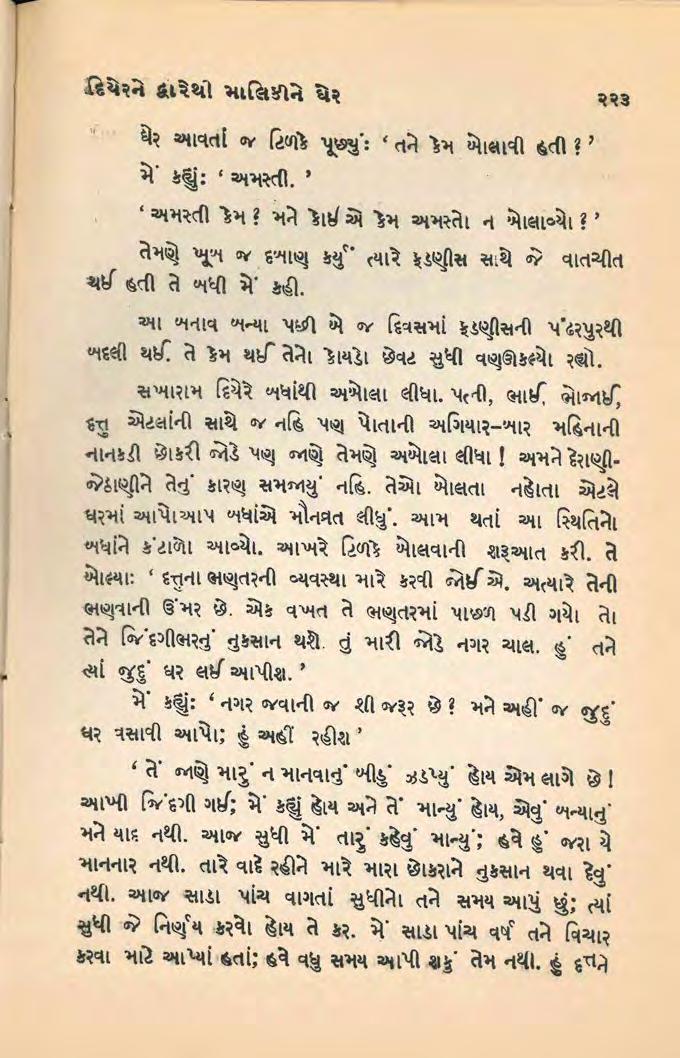 દિયેરને દ્વારેથી માલિકીને ઘેર ૨૨૩
ઘેર આવતાં જ ટિળકે પૂછ્યું: ‘તને કેમ બોલાવી હતી ?’
મેં કહ્યું: ‘અમસ્તી. ’
‘અમસ્તી કેમ ? મને કોઈ એ કેમ અમસ્તો ન બોલાવ્યો ?’
તેમણે ખૂબ જ દબાણ કર્યું ત્યારે ફડણીસ સાથે જે વાતચીત
થઈ હતી તે બધી મેં કહી.
આ બનાવ બન્યા પછી બે જ દિવસમાં ફડણીસની પંઢરપુરથી
બદલી થઈ. તે કેમ થઈ તેનો કોયડો છેવટ સુધી વણઊકલ્યો રહ્યો.
સખારામ દિયેરે બધાંથી અબોલા લીધા. પત્ની, ભાઈ, ભોજાઈ,
દત્તુ એટલાંની સાથે જ નહિ પણ પોતાની અગિયાર–બાર મહિનાની
નાનકડી છોકરી જોડે પણ જાણે તેમણે અબોલા લીધા ! અમને દેરાણી-
જેઠાણીને તેનું કારણ સમજાયું નહિ. તેઓ બોલતા નહોતા એટલે
ઘરમાં આપોઆપ બધાંએ મૌનવ્રત લીધું. આમ થતાં આ સ્થિતિનો
બધાંને કંટાળો આવ્યો. આખરે ટિળકે બોલવાની શરૂઆત કરી. તે
બોલ્યા: ‘દત્તુના ભણતરની વ્યવસ્થા મારે કરવી જોઈએ. અત્યારે તેની
ભણવાની ઉંમર છે. એક વખત તે ભણતરમાં પાછળ પડી ગયો તો
તેને જિંદગીભરનું નુકસાન થશે. તું મારી જોડે નગર ચાલ. હું તને
ત્યાં જુદું ઘર લઈ આપીશ.’
મેં કહ્યું: ‘નગર જવાની જ શી જરૂર છે ? મને અહીં જ જુદું
ઘર વસાવી આપો; હું અહીં રહીશ ’
‘તેં જાણે મારું ન માનવાનું બીડું ઝડપ્યું હોય એમ લાગે છે !
આખી જિંદગી ગઈ; મેં કહ્યું હોય અને તેં માન્યું હોય, એવું બન્યાનું
મને યાદ નથી. આજ સુધી મેં તારું કહેવું માન્યું; હવે હું જરા યે
માનનાર નથી. તારે વાદે રહીને મારે મારા છોકરાને નુકસાન થવા દેવું
નથી. આજ સાડા પાંચ વાગતાં સુધીનો તને સમય આપું છું; ત્યાં
સુધી જે નિર્ણય કરવો હોય તે કર. મેં સાડા પાંચ વર્ષ તને વિચાર
કરવા માટે આપ્યાં હતાં; હવે વધુ સમય આપી શકું તેમ નથી. હું દત્તને